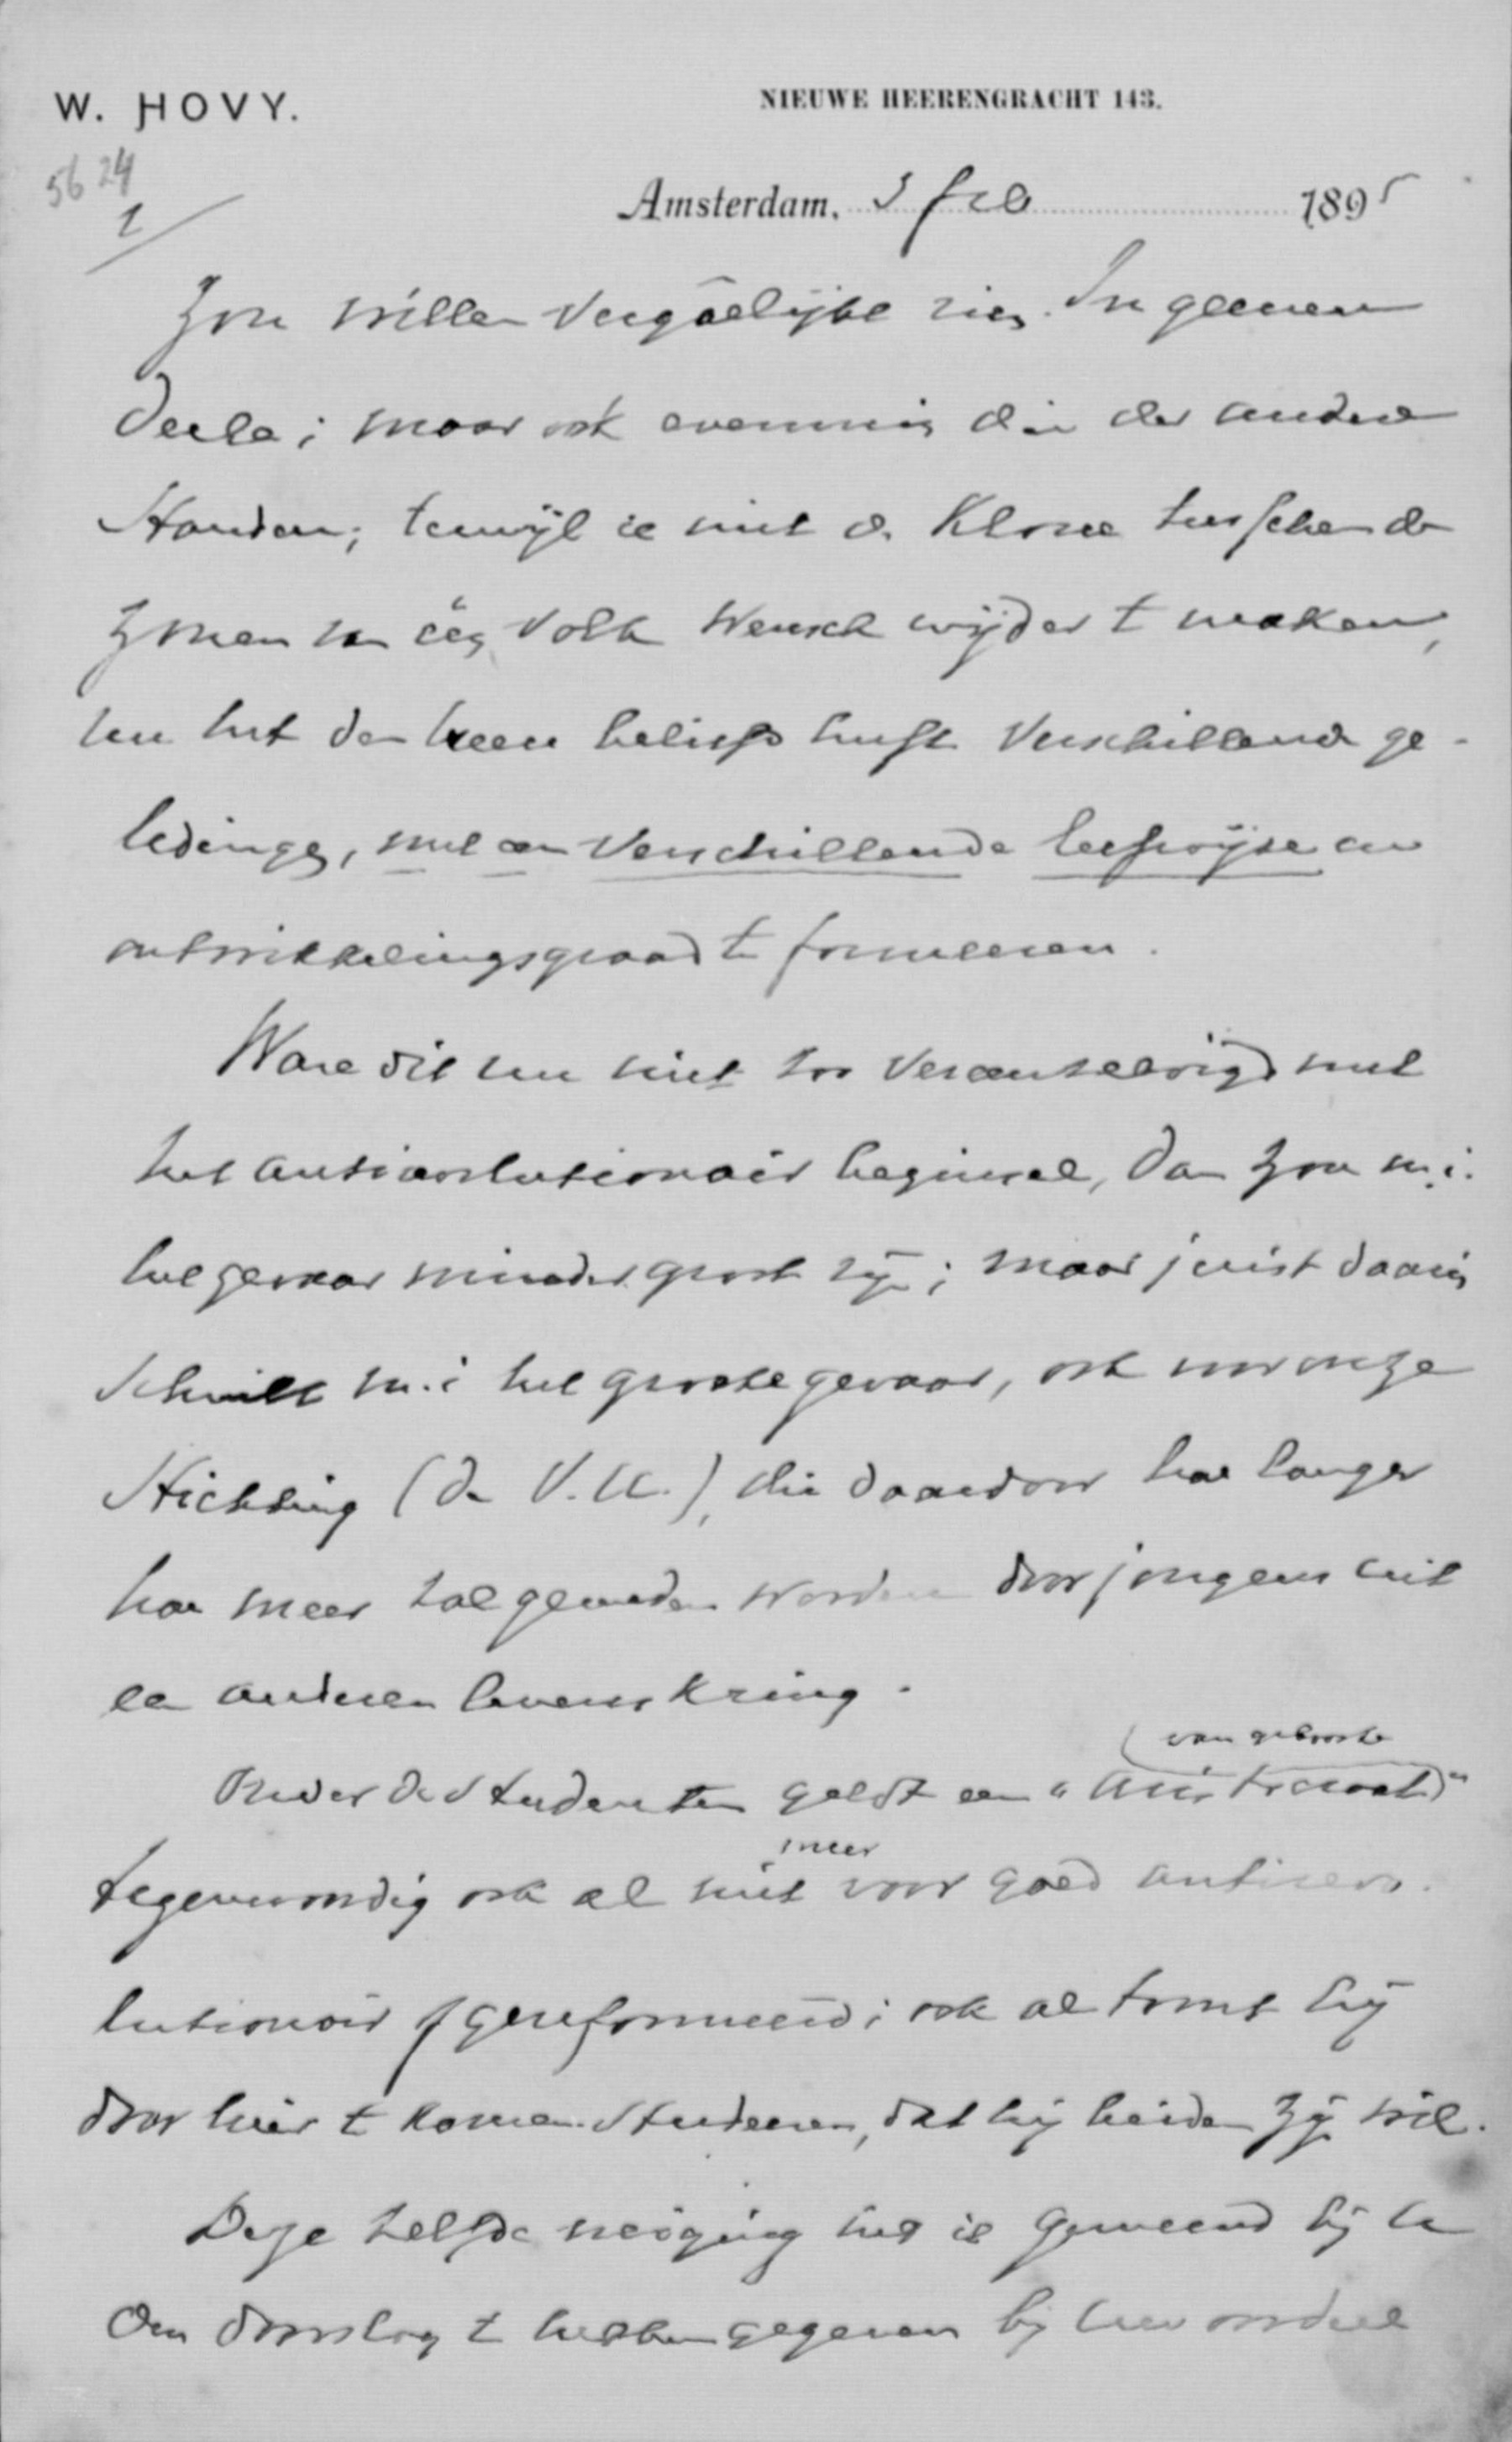 W. HOVY.
NIEUWE HEERENGRACHT 143.
5624
1
Amsterdam, 5 feb 1895
Zou willen vergoelijkt zien. In geenen
deele; maar ook evenmin die der andere
Standen; terwijl ik niet de Klove tusschen de
zonen van één volk wensch wijder te maken,
nu het den Heere beliefs heeft verschillende ge-
ledingen, met een verschillende leefwijze en
ontwikkelingsgraad te formeeren.
Ware dit nu niet zoo vereenzelvigd met
het antirevolutionair beginsel, dan zou m.i.
het gevaar minder groot zijn; maar juist daarin
schuilt m.i. het groote gevaar, ook voor onze
Stichting (de V.U.), die daardoor hoe langer
hoe meer zal gemeden worden door jongens uit
een anderen levenskring.
Onder de Studenten geldt een "Aristocraat"
(van geboorte)
tegenwoordig ook al niet meer voor goed antirevo-
lutionair of gereformeerd; ook al toont hij
door hier te komen studeeren, dat hij beiden zijn wil.
Deze zelfde neiging heb ik gemeend bij te
den doorslag te hebben gegeven bij uw oordeel